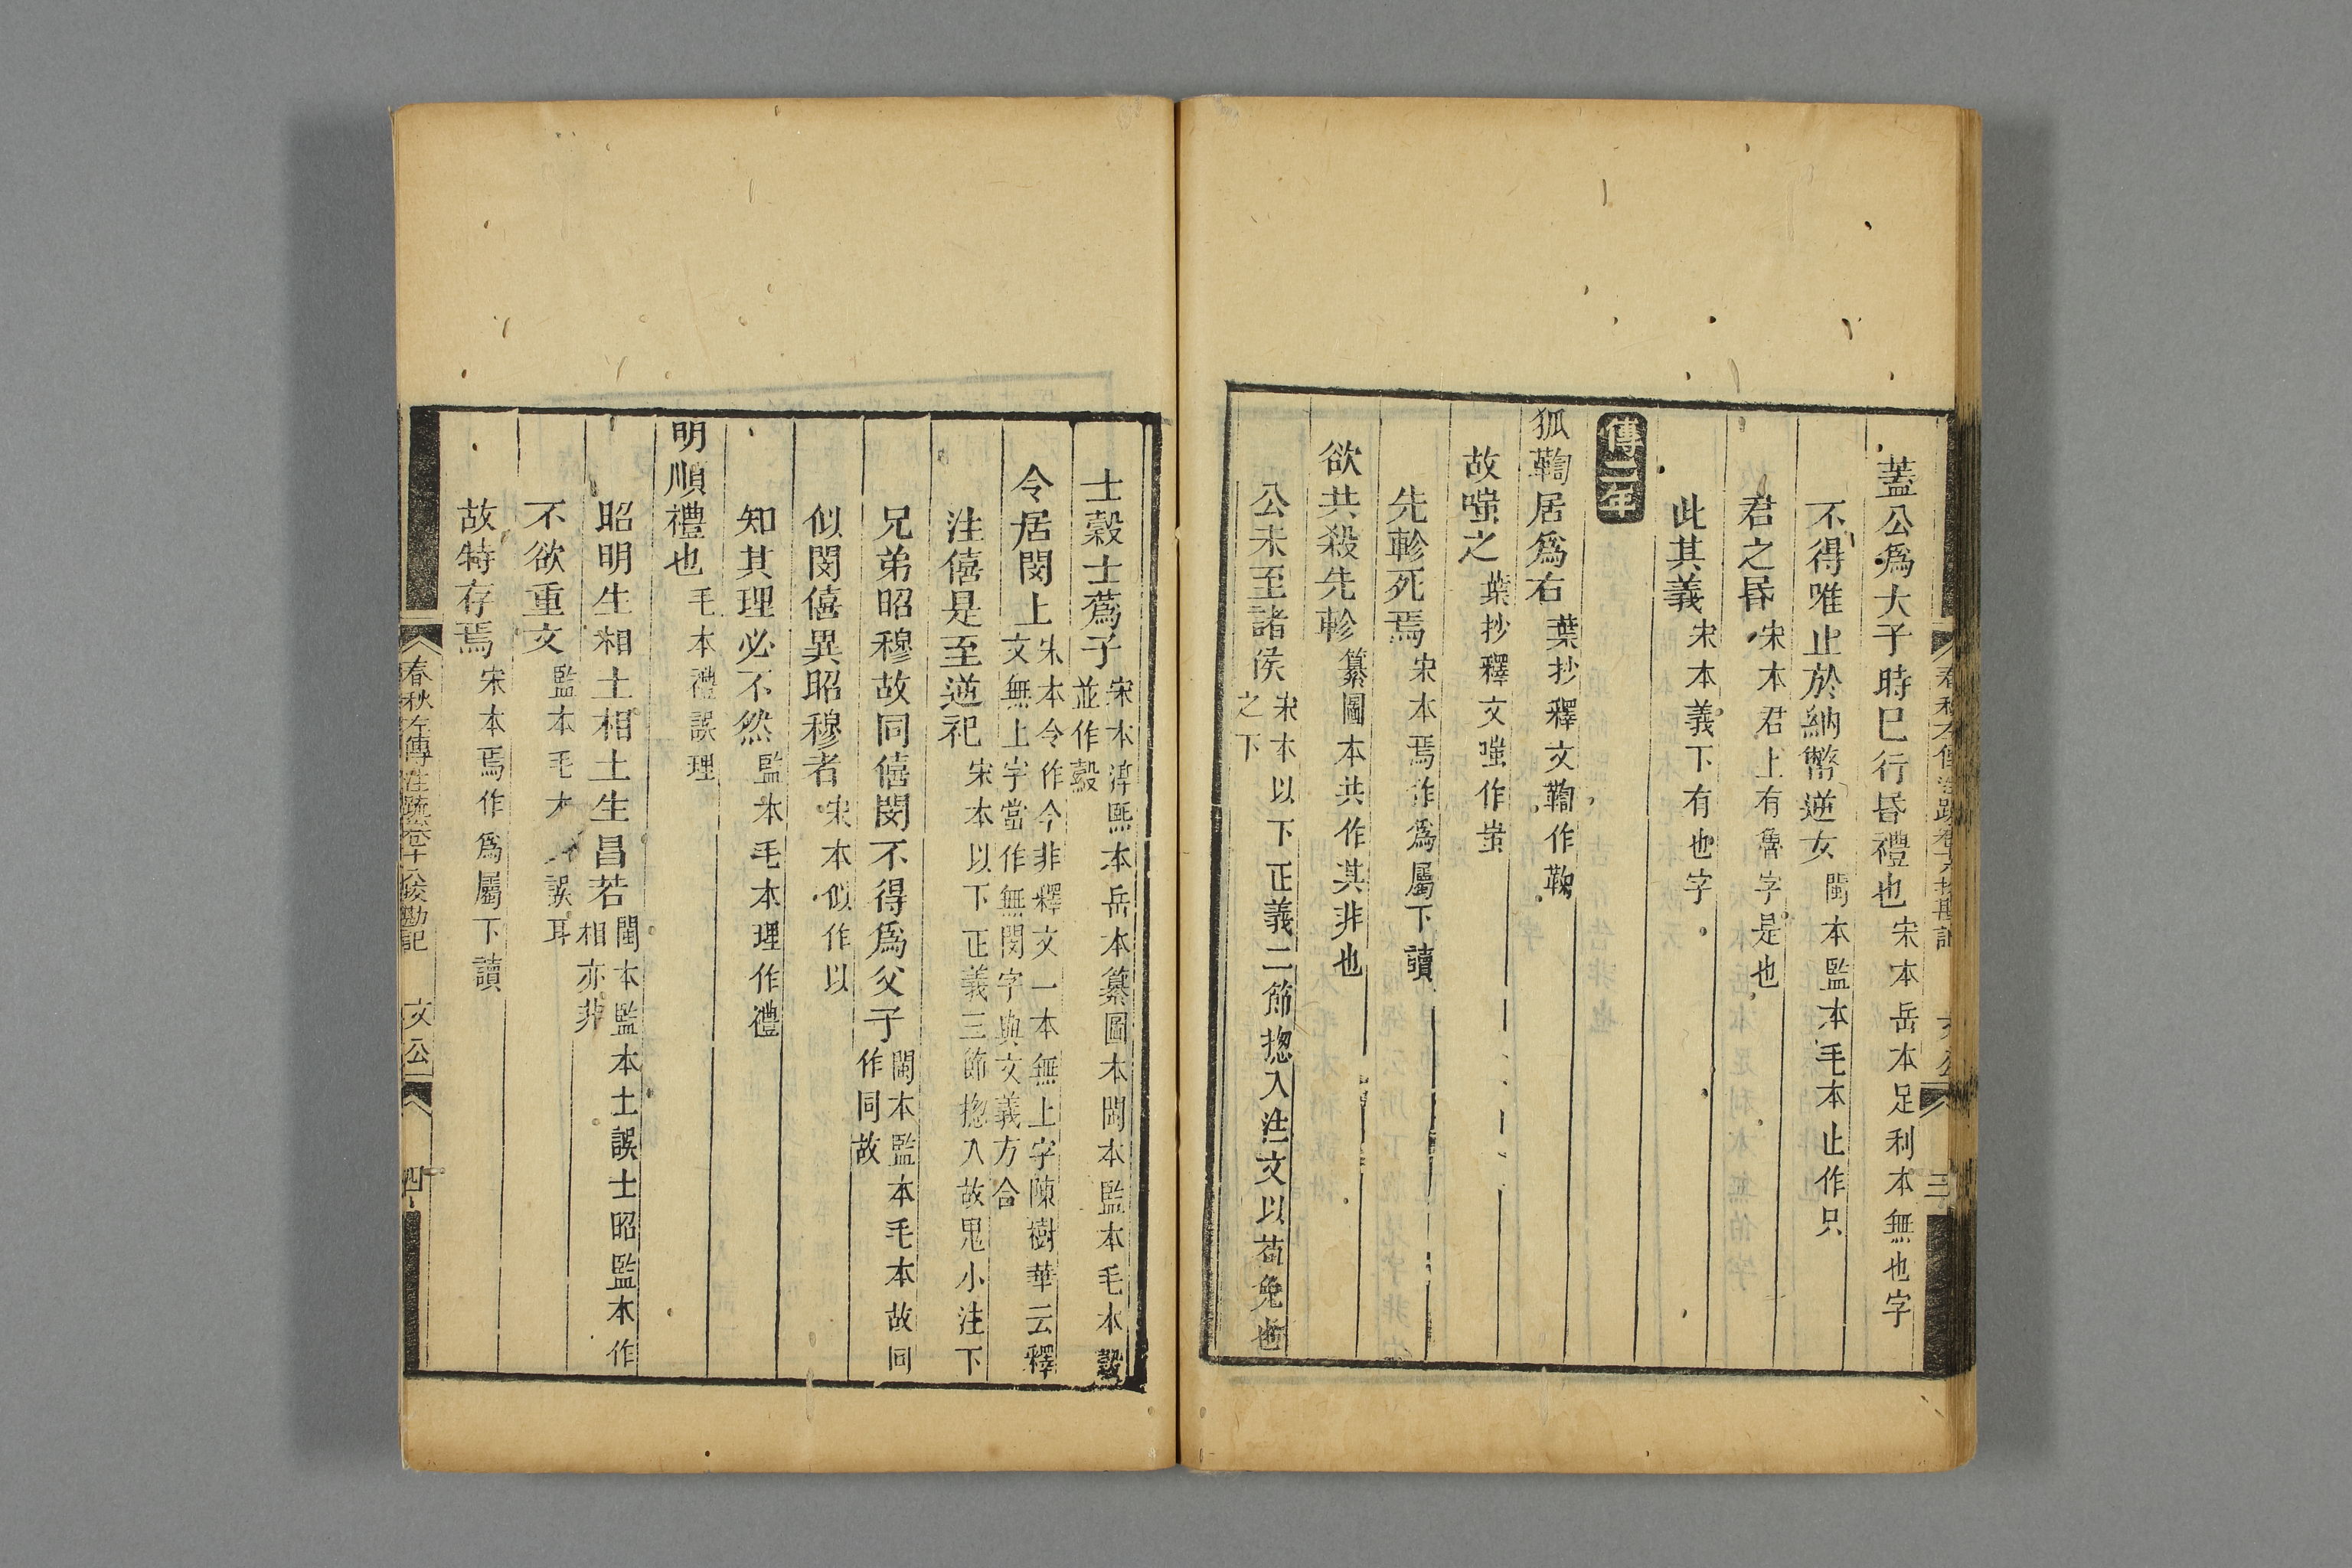 蓋公爲大子時巳行昏禮也宋本岳本足利本無也字
不得唯止於納幣逆女閩本監本毛本止作只
君之昏宋本君上有魯字是也
此其義宋本義下有也字
傳二年
狐鞫居爲右葉抄釋文鞫作鞠
故嗤之葉抄釋文嗤作蚩
先軫死焉宋本焉作爲屬下讀
欲共殺先軫纂圖本共作其非也
公未至諸侯宋本以下正義二節揔入注文以苟免也
之下
士縠士蔿子宋本淳熙本岳本纂圖本閩本監本毛本縠
並作縠
令居閔上宋本令作今非釋文一本無上字陳樹華云釋
文無上字當作無閔字與文義方合
注僖是至逆祀宋本以下正義三節揔入故鬼小注下
兄弟昭穆故同僖閔不得爲父子閩本監本毛本故同
作同故
似閔僖異昭穆者宋本似作以
知其理必不然監本毛本理作禮
明順禮也毛本禮誤理
昭明生相土相土生昌若閩本監本土誤士昭監本作
相亦非
不欲重文監本毛本文誤耳
故特存焉宋本焉作爲屬下讀
春秋左傳注疏卷十八挍勘記　文公　四